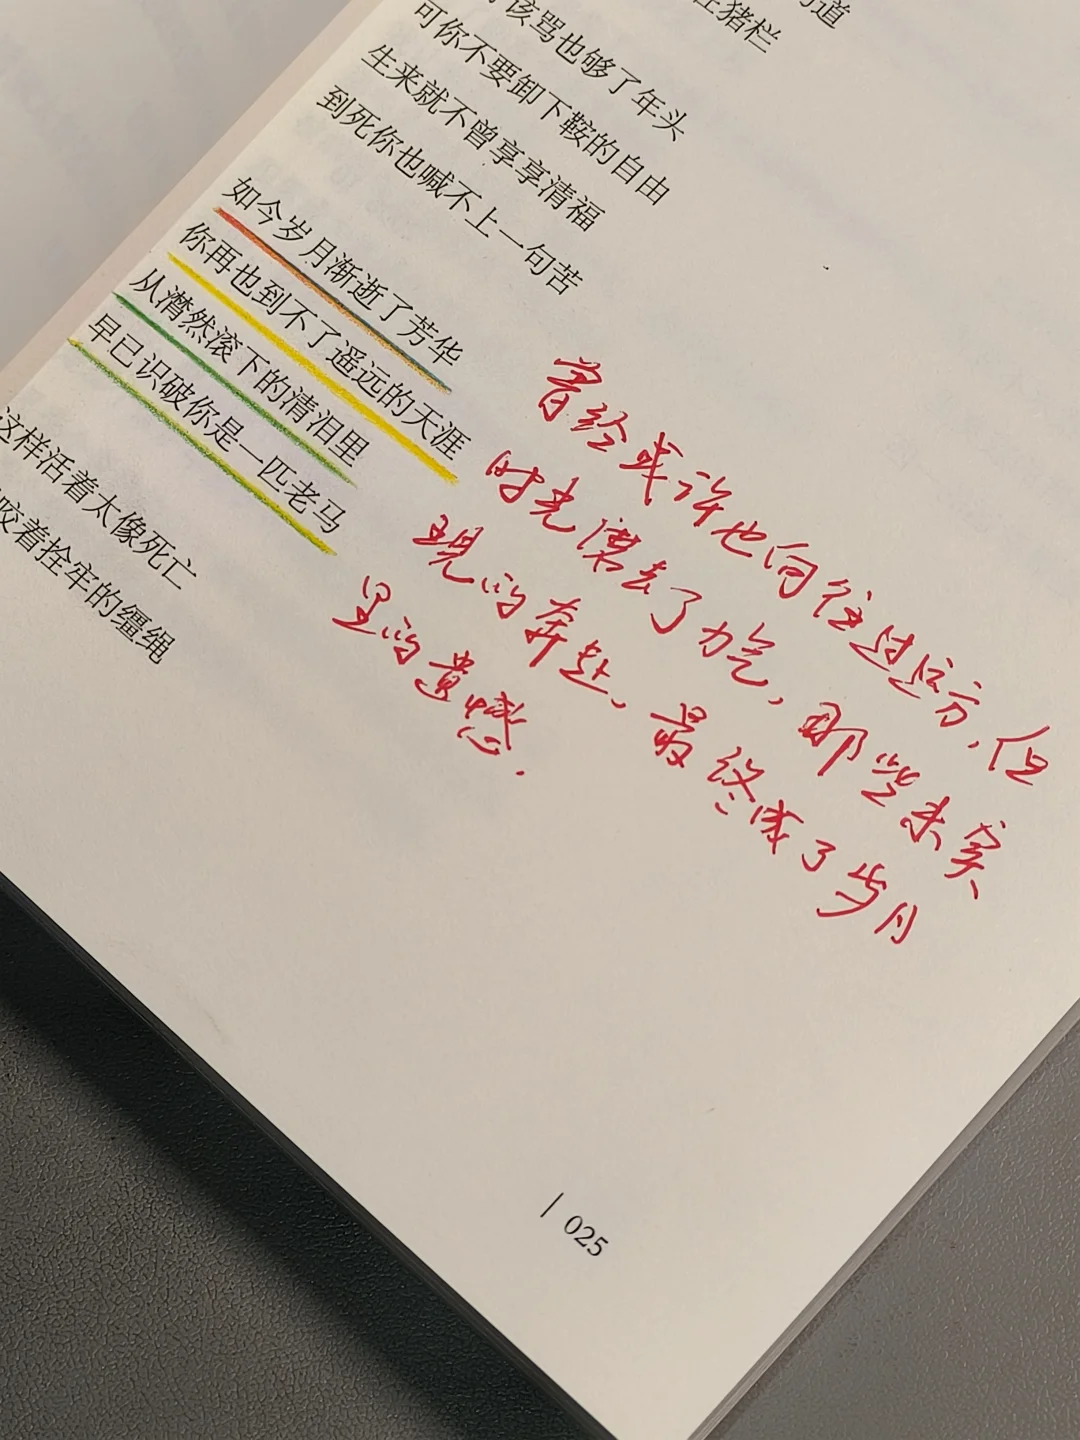 道
在猪栏
该骂也够了年头
可你不要卸下鞍的自由
生来就不曾享享清福
到死你也喊不上一句苦
如今岁月渐逝了芳华
你再也到不了遥远的天涯
从潸然滚下的清泪里
早已识破你是一匹老马
这样活着太像死亡
咬着拴牢的缰绳
曾经或许也向往过远方，但
时光磨去了力气，那些未实
现的奔赴、最终成了岁月
里的遗憾.
025